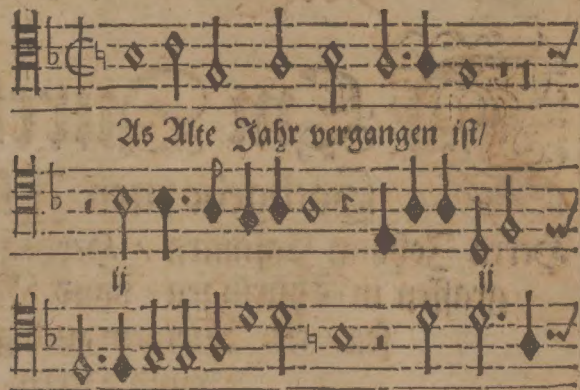 As Alte Jahr vergangen ist/
ij ij